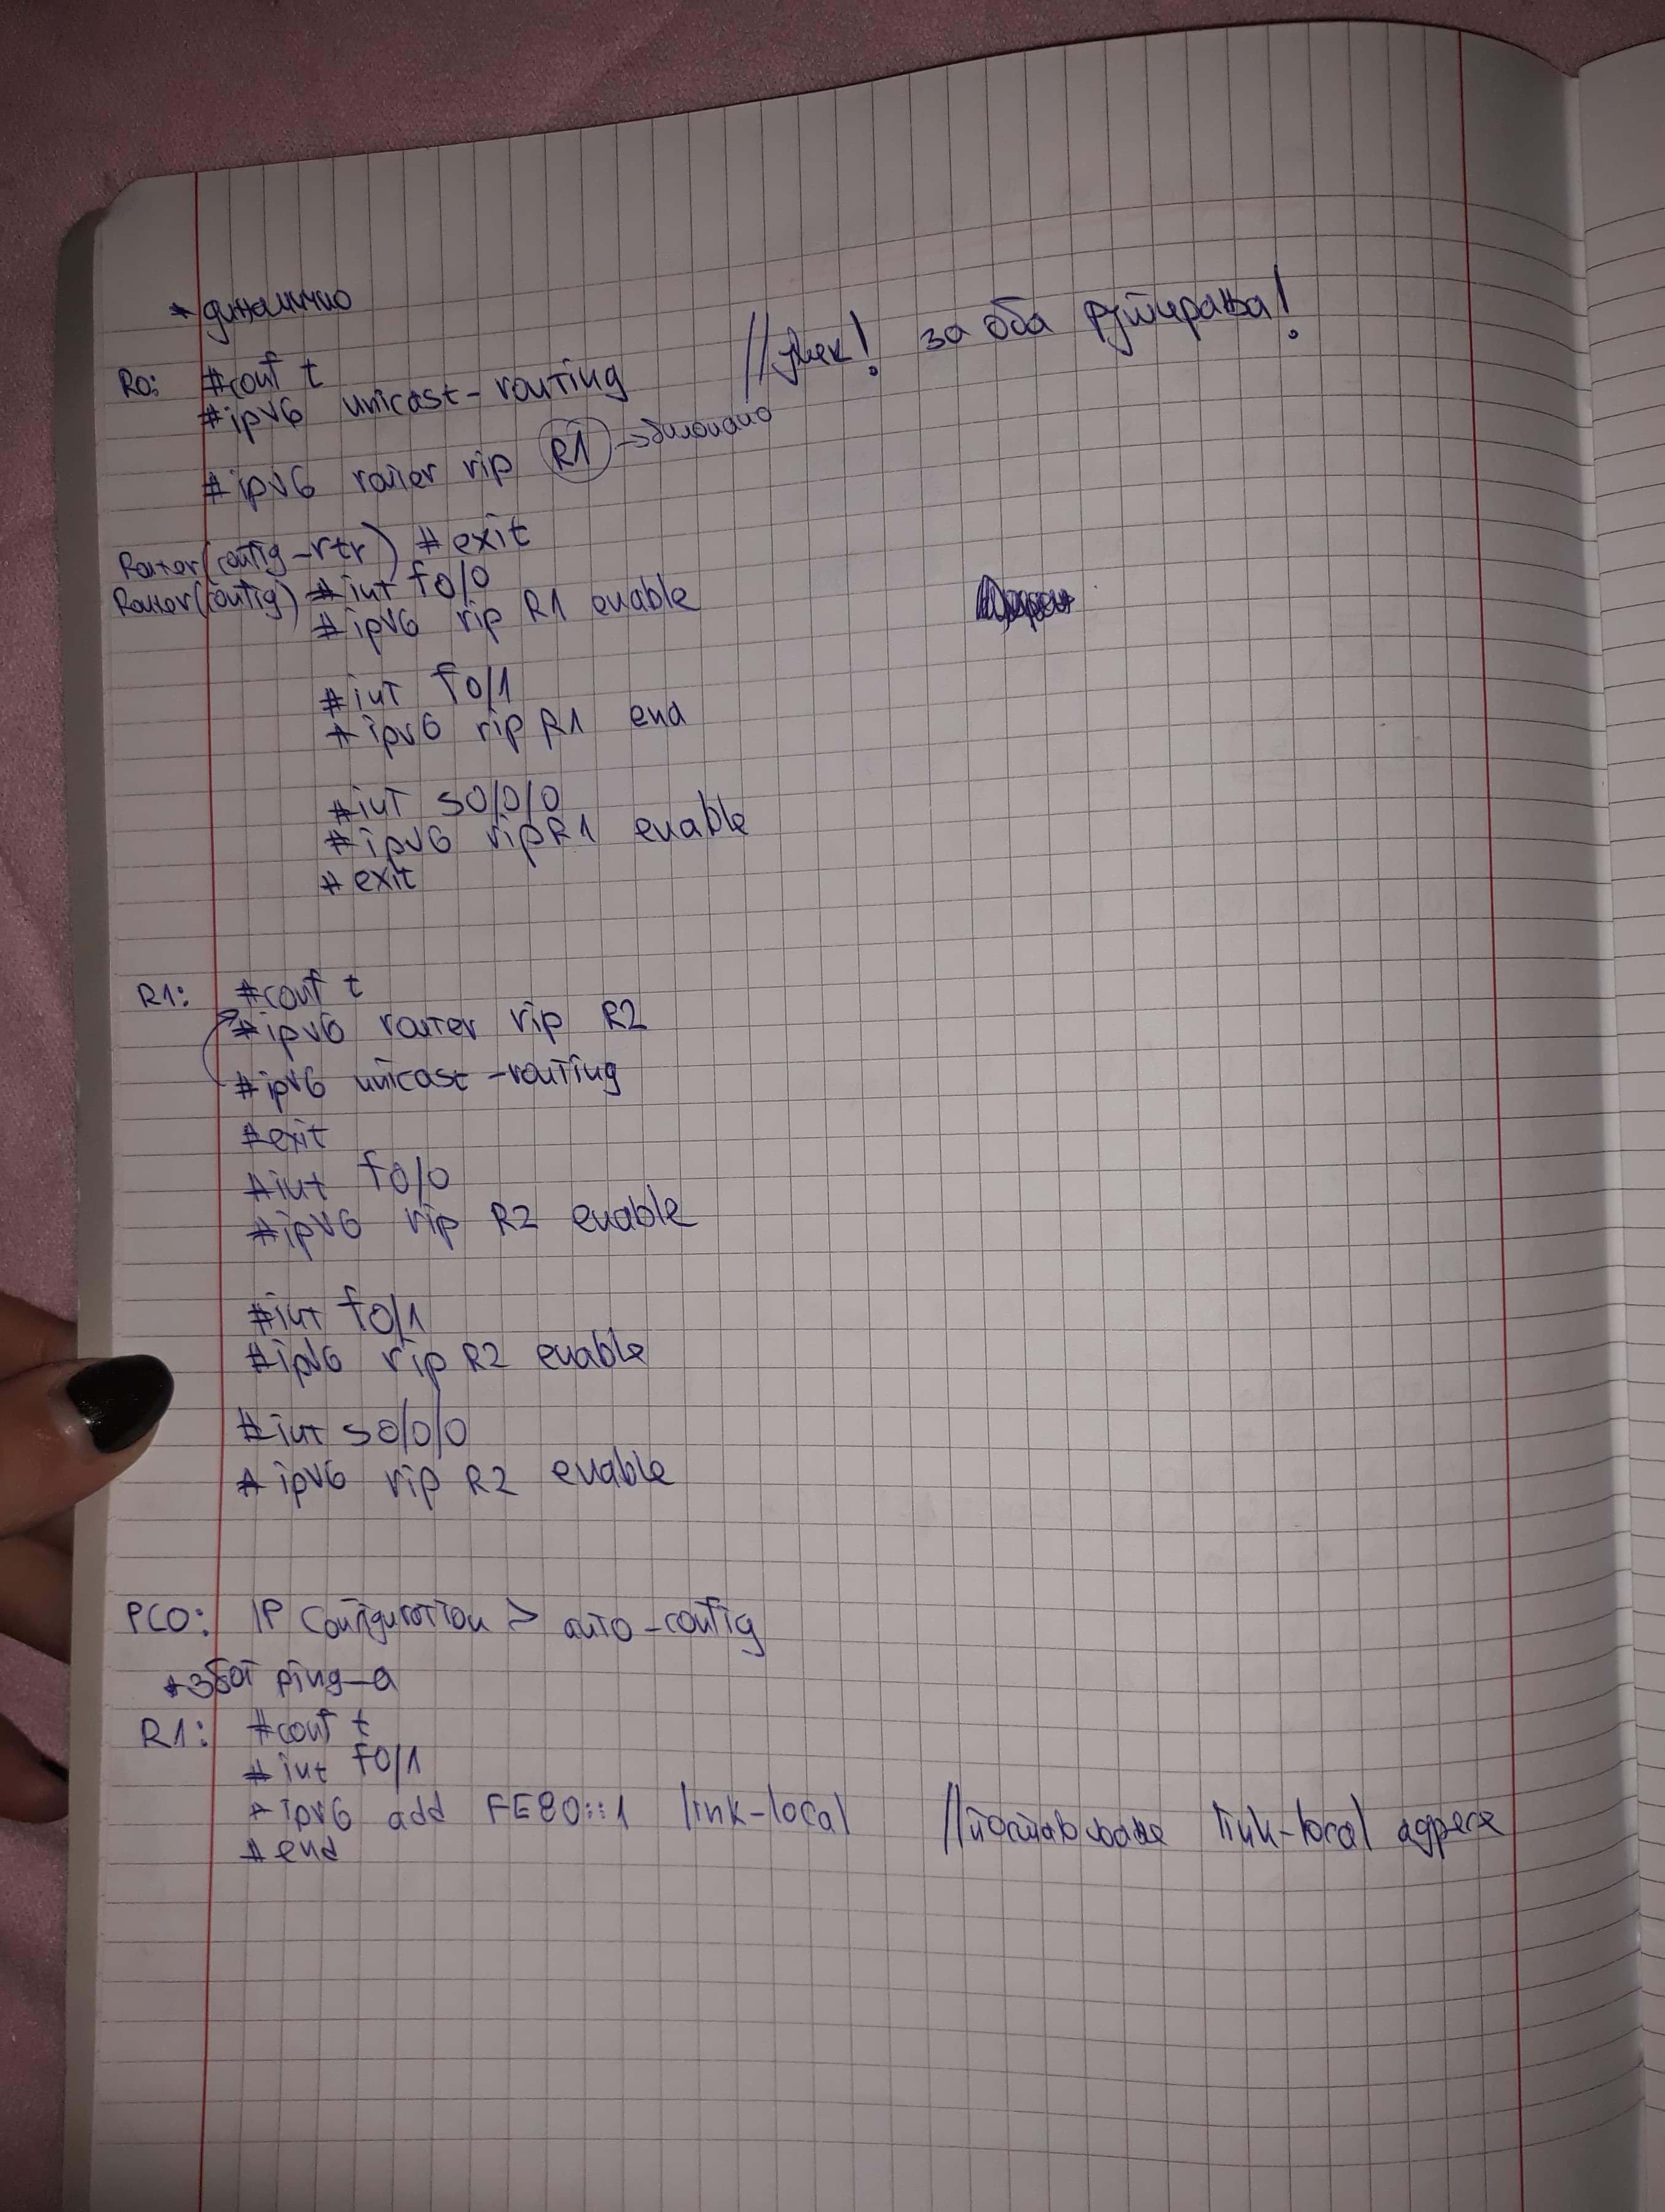 * динамично
R0: #conf t
#ipv6 unicast-routing //увек! за оба рутирања!
#ipv6 router rip R1 → било како
Router(config-rtr) #exit
Router(config) #int f0/0
#ipv6 rip R1 enable
#int f0/1
#ipv6 rip R1 ena
#int s0/0/0
#ipv6 rip R1 enable
#exit
R1: #conf t
#ipv6 router rip R2
#ipv6 unicast-routing
#exit
#int f0/0
#ipv6 rip R2 enable
#int f0/1
#ipv6 rip R2 enable
#int s0/0/0
#ipv6 rip R2 enable
PC0: IP Configuration > auto-config
*због ping-a
R1: #conf t
#int f0/1
#ipv6 add FE80::1 link-local //постављање link-local адресе
#end